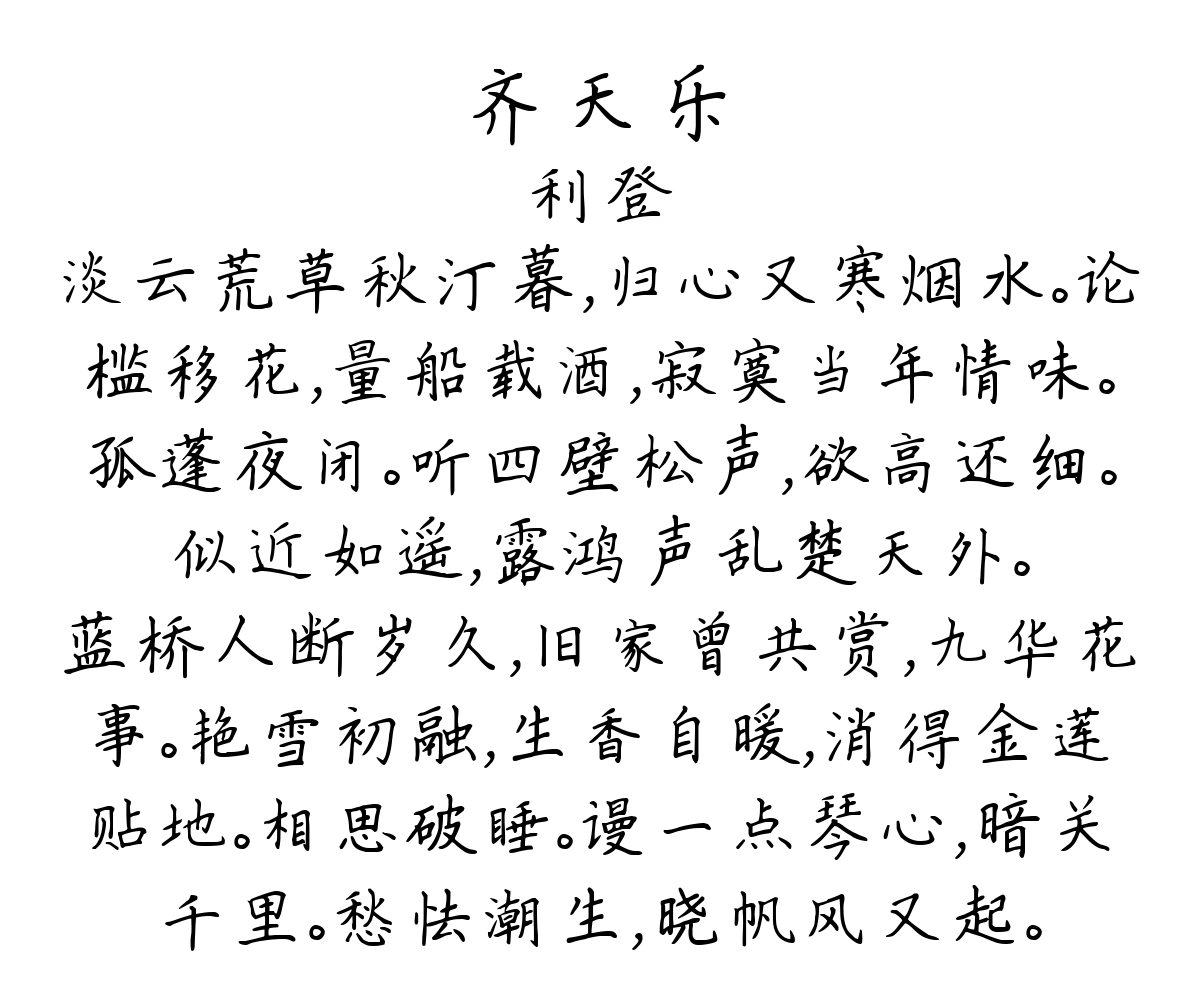 齐天乐
利登
淡云荒草秋汀暮,归心又寒烟水。论
槛移花,量船载酒,寂寞当年情味。
孤蓬夜闭。听四壁松声,欲高还细。
似近如遥,露鸿声乱楚天外。
蓝桥人断岁久,旧家曾共赏,九华花
事。艳雪初融,生香自暖,消得金莲
贴地。相思破睡。谩一点琴心,暗关
千里。愁怯潮生,晓帆风又起。